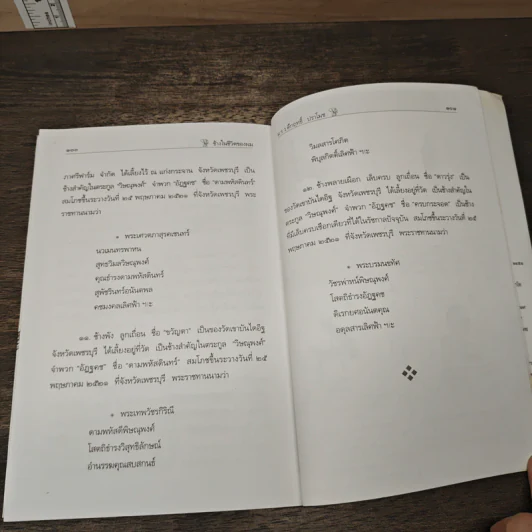 ช้างในชีวิตของผม
ภาคริฟาร์ม จำกัด ได้เลี้ยงไว้ ณ แก่งกระจาน จังหวัดเพชรบุรี เป็น
ช้างสำคัญในตระกูล "วิษณุพงศ์" จำพวก "อัฏฐคช" ชื่อ "ดามพหัสดินทร์"
สมโภชขึ้นระวางวันที่ ๒๕ พฤษภาคม ๒๕๒๑ ที่จังหวัดเพชรบุรี พระ
ราชทานนามว่า
พระเศวตภาสุรคเชนทร์
นวเมนทรพาหน
สุทธวิมลวิษณุพงศ์
คุณธำรงดามพหัสดินทร์
สุพัชรินทร์อนันตพล
คชมงคลเลิศฟ้า ฯะ
๑๑. ช้างพัง ลูกเถื่อน ชื่อ "ขวัญตา" เป็นของวัดเขาบันไดอิฐ
จังหวัดเพชรบุรี ได้เลี้ยงอยู่ที่วัด เป็นช้างสำคัญในตระกูล "วิษณุพงศ์"
จำพวก "อัฏฐคช" ชื่อ "ดามพหัสดินทร์" สมโภชขึ้นระวางวันที่ ๒๕
พฤษภาคม ๒๕๒๑ ที่จังหวัดเพชรบุรี พระราชทานนามว่า
พระเทพวัชรกิริณี
ดามพหัสดีพิษณุพงศ์
โสตถิธำรงวิสุทธิลักษณ์
อำนรรฆคุณสบสกนธ์
ม.ร.ว.คึกฤทธิ์ ปราโมช
วิมลสารโสภิต
พิบุลกิตติ์เลิศฟ้า ฯะ
๑๒. ช้างพลายเผือก เล็บครบ ลูกเถื่อน ชื่อ "ดาวรุ่ง" เป็น
ของวัดเขาบันไดอิฐ จังหวัดเพชรบุรี ได้เลี้ยงอยู่ที่วัด เป็นช้างสำคัญใน
ตระกูล "วิษณุพงศ์" จำพวก "อัฏฐคช" ชื่อ "ครบกระจอก" เป็นช้าง
ที่มีเล็บครบเชือกเดียวที่ได้ในรัชกาลปัจจุบัน สมโภชขึ้นระวางวันที่ ๒๕
พฤษภาคม ๒๕๒๑ ที่จังหวัดเพชรบุรี พระราชทานนามว่า
พระบรมนขทัศ
วัชรพาหน์พิษณุพงศ์
โสตถิธำรงอัฏฐคช
ดิเรกยศอนันตคุณ
อดุลสารเลิศฟ้า ฯะ